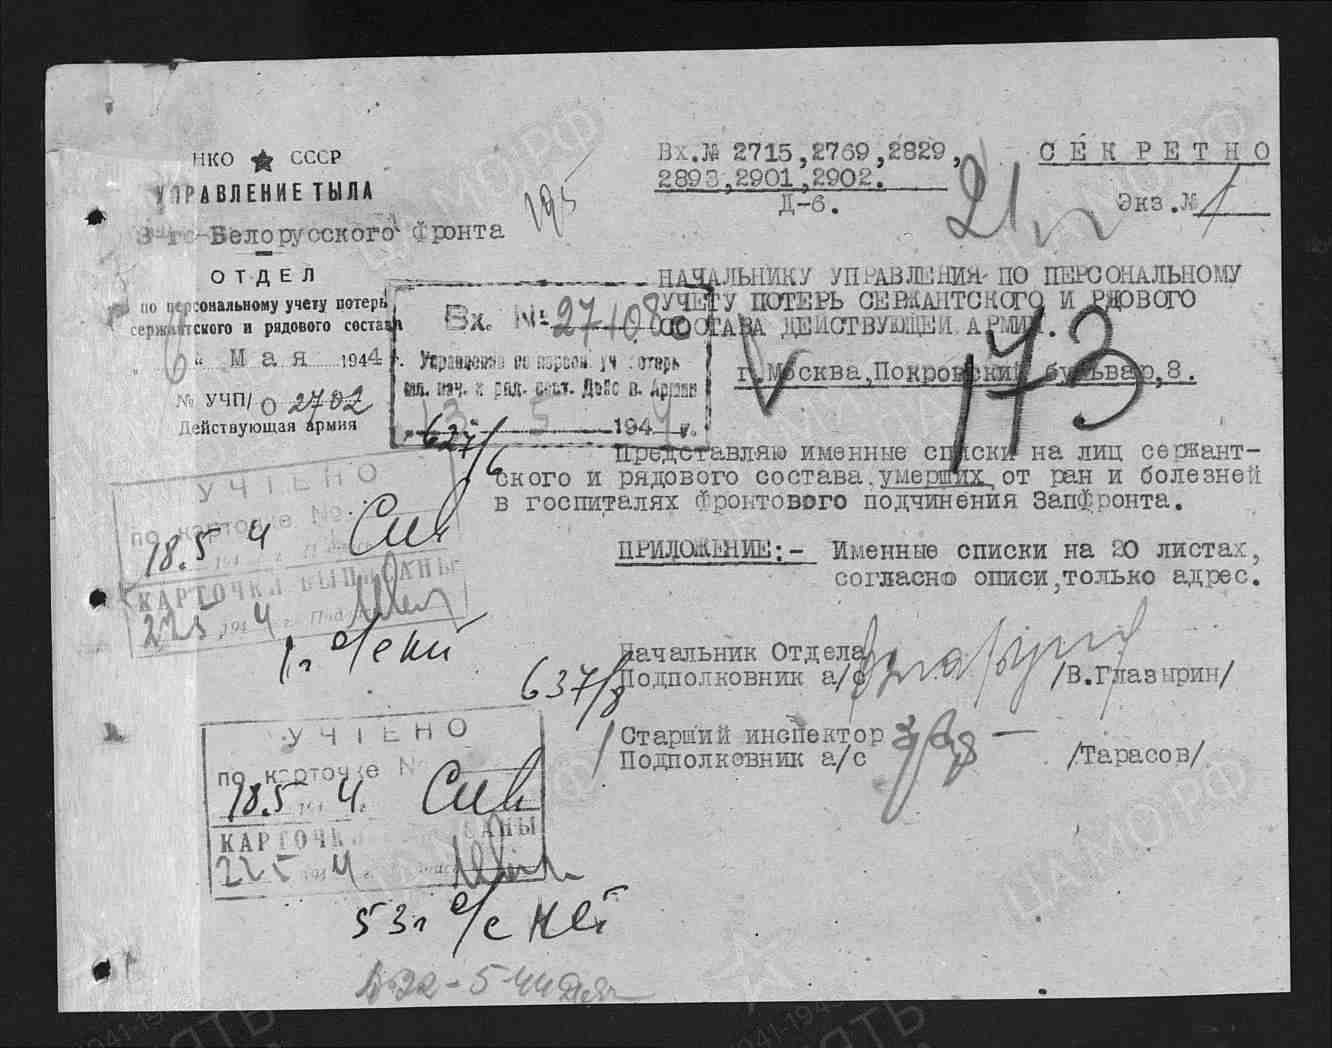 НКО СССР
УПРАВЛЕНИЕ ТЫЛА
3-го Белорусского фронта
ОТДЕЛ
по персональному учету потерь
сержантского и рядового состава
6 " Мая 1944 г.
№ УЧП/О 2702
Действующая армия
195
Вх.№ 2715,2769,2829,
2893,2901,2902.
Д-6.
СЕКРЕТНО
Экз.№ 1
НАЧАЛЬНИКУ УПРАВЛЕНИЯ ПО ПЕРСОНАЛЬНОМУ
УЧЕТУ ПОТЕРЬ СЕРЖАНТСКОГО И РЯДОВОГО
СОСТАВА ДЕЙСТВУЮЩЕЙ АРМИИ.
г.Москва,Покровский бульвар,8.
173
Вх. № 27108
Управление по персон. уч. потерь
мл. нач. и ряд. сост. Дейс в. Армии
13 5 1944 г.
637/6
Представляю именные списки на лиц сержант-
ского и рядового состава умерших от ран и болезней
в госпиталях фронтового подчинения Запфронта.
ПРИЛОЖЕНИЕ:- Именные списки на 20 листах,
согласно описи,только адрес.
УЧТЕНО
по карточке №
18.5 4
КАРТОЧКИ ВЫПИСАНЫ
22 5 1944 г.
Начальник Отдела
Подполковник а/с /В.Глазырин/
637/8
Старший инспектор
Подполковник а/с /Тарасов/
УЧТЕНО
по карточке №
18.5 4 г.
КАРТОЧКИ ВЫПИСАНЫ
22 5 1944 г.
53л с/с
22-5-44
ЦАМО РФ